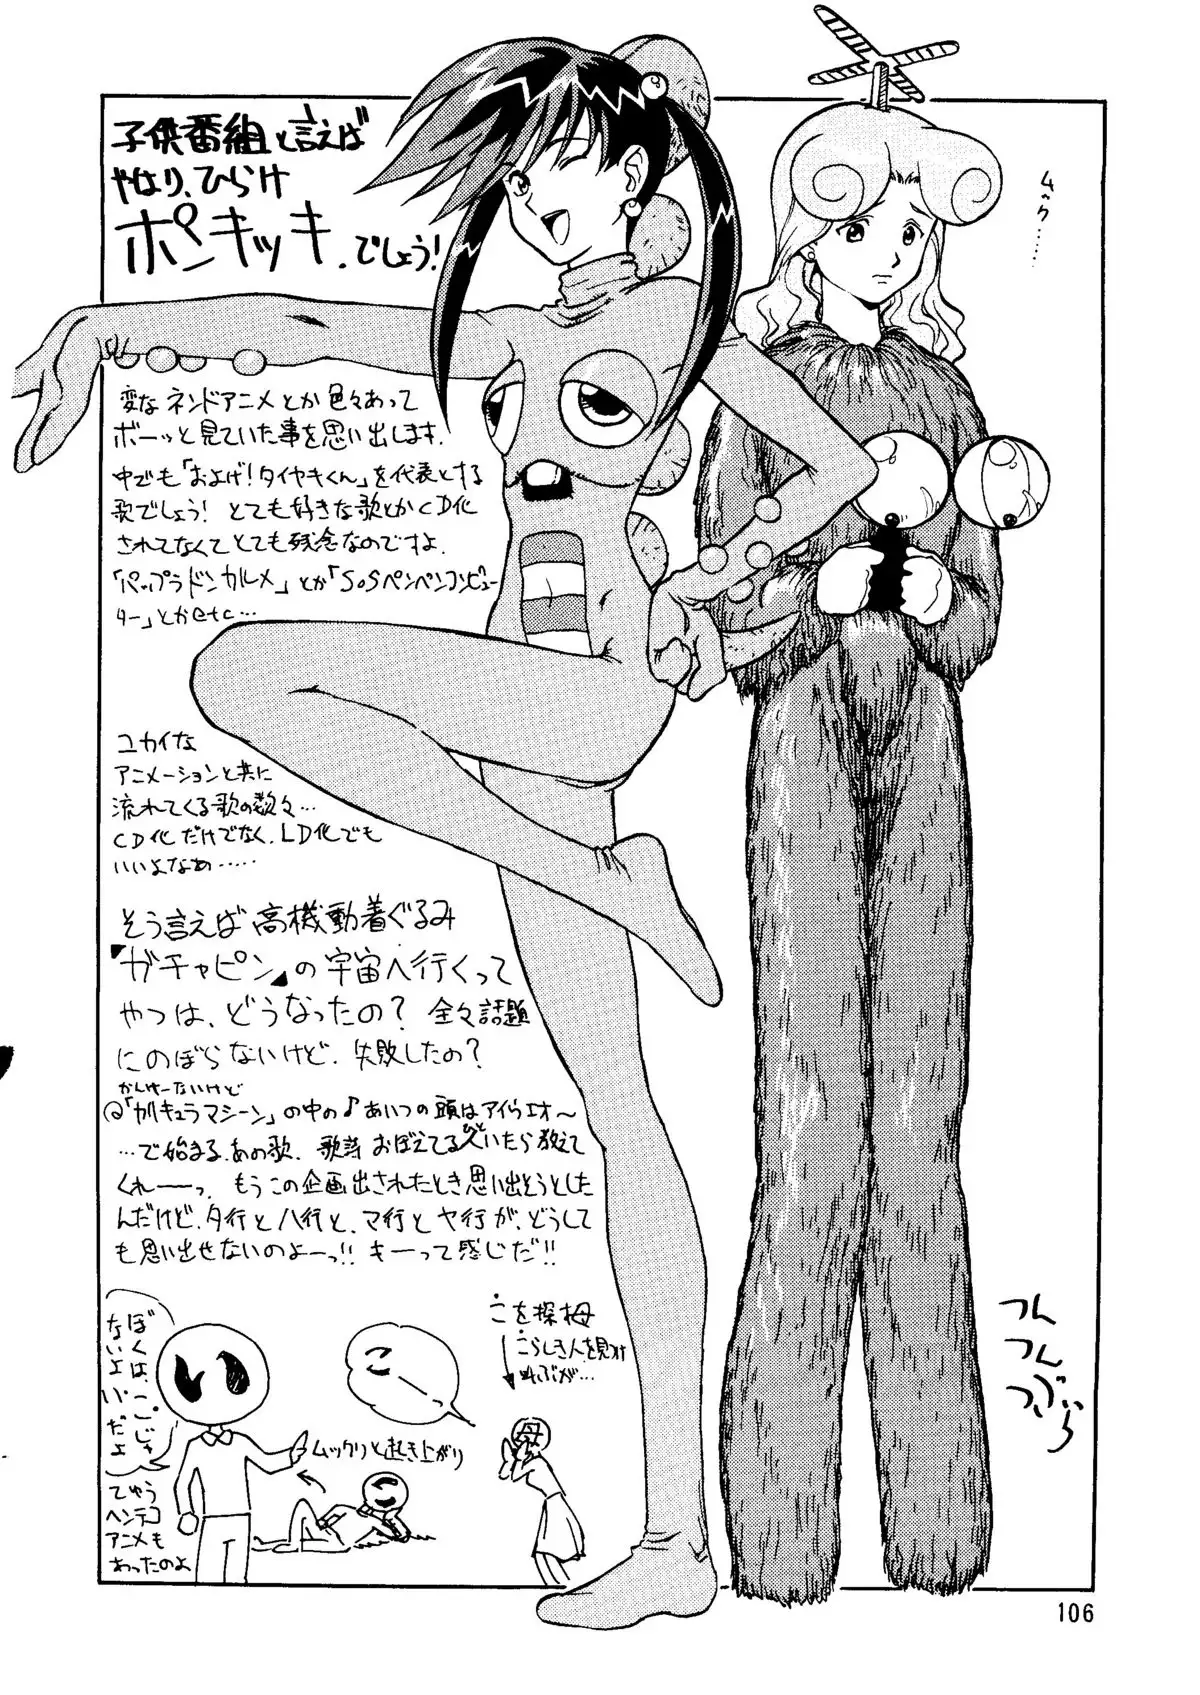 子供番組と言えば
やはり、ひらけ
ポンキッキ.でしょう!
変なネンドアニメとか色々あって
ボーッと見ていた事を思い出します.
中でも「およげ!タイヤキくん」を代表とする
歌でしょう! とても好きな歌とかCD化
されてなくてとても残念なのですよ.
「パップラドンカルメ」とか「SOSペンペンコンピュー
ター」とかetc…
ユカイな
アニメーションと共に
流れてくる歌の数々…
CD化だけでなく、LD化でも
いいよなぁ……
そう言えば高機動着ぐるみ
『ガチャピン』の宇宙へ行くって
やつは、どうなったの? 全々話題
にのぼらないけど、失敗したの?
かんけーないけど
@「ガリキュラマシーン」の中の♪あいつの頭はアイウエオ〜
…で始まる、あの歌、歌詩おぼえてる人いたら教えて
くれーーっ、もうこの企画出されたとき思い出そうとした
んだけど、タ行とハ行と、マ行とヤ行が、どうして
も思い出せないのよーっ!! キーって感じだ!!
ムック……
つん
つん
ぼくは、こじゃ
ないよ『い』だよ
てゆう
ヘンテコ
アニメも
あったのよ
こ
ー
ムックリと起き上がり
い
こ
こを探母
母
106